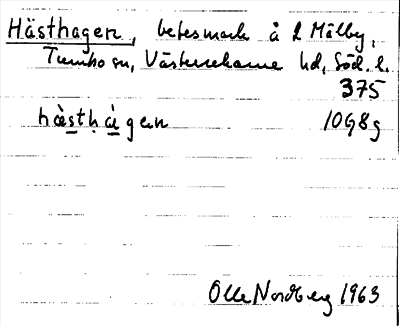 Hästhagen, betesmark å L Mälby,
Tumbo sn, Västerrekarne hd, Söd. l.
375
hästhagen 1098g
Olle Nordberg 1963